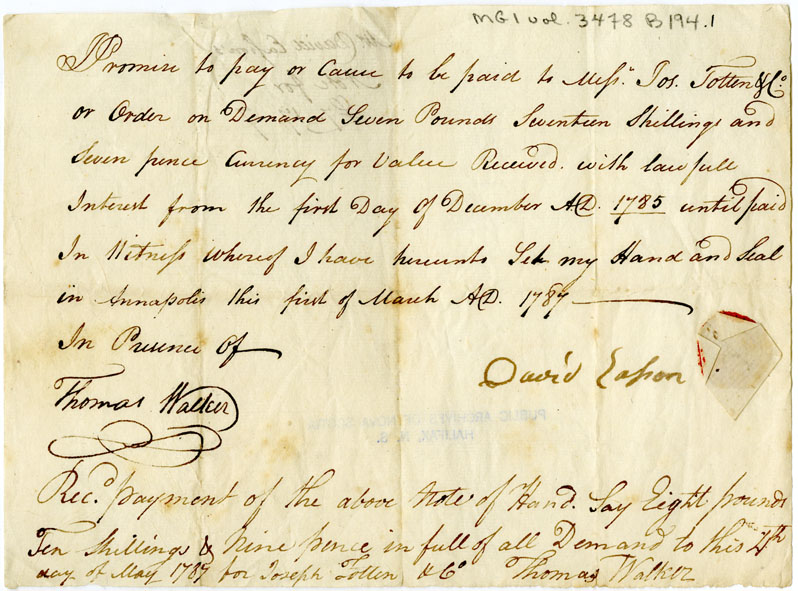 MG1 vol. 3478 B194.1
I Promise to pay or Cause to be paid to Messrs. Jos. Totten & Co.
or Order on Demand Seven Pounds Seventeen Shillings and
Seven pence Currency for Value Received. with lawfull
Interest from the first Day of December AD. 1785 until paid
In Witness whereof I have hereunto Set my Hand and Seal
in Annapolis this first of March AD. 1787
In Presence of
David Eason
Thomas Walker
PUBLIC ARCHIVES OF NOVA SCOTIA
HALIFAX, N. S.
Recd. payment of the above Note of Hand. Say Eight pounds
Ten Shillings & Nine pence in full of all Demand to this 4th
day of May 1787 for Joseph Totten & Co Thomas Walker